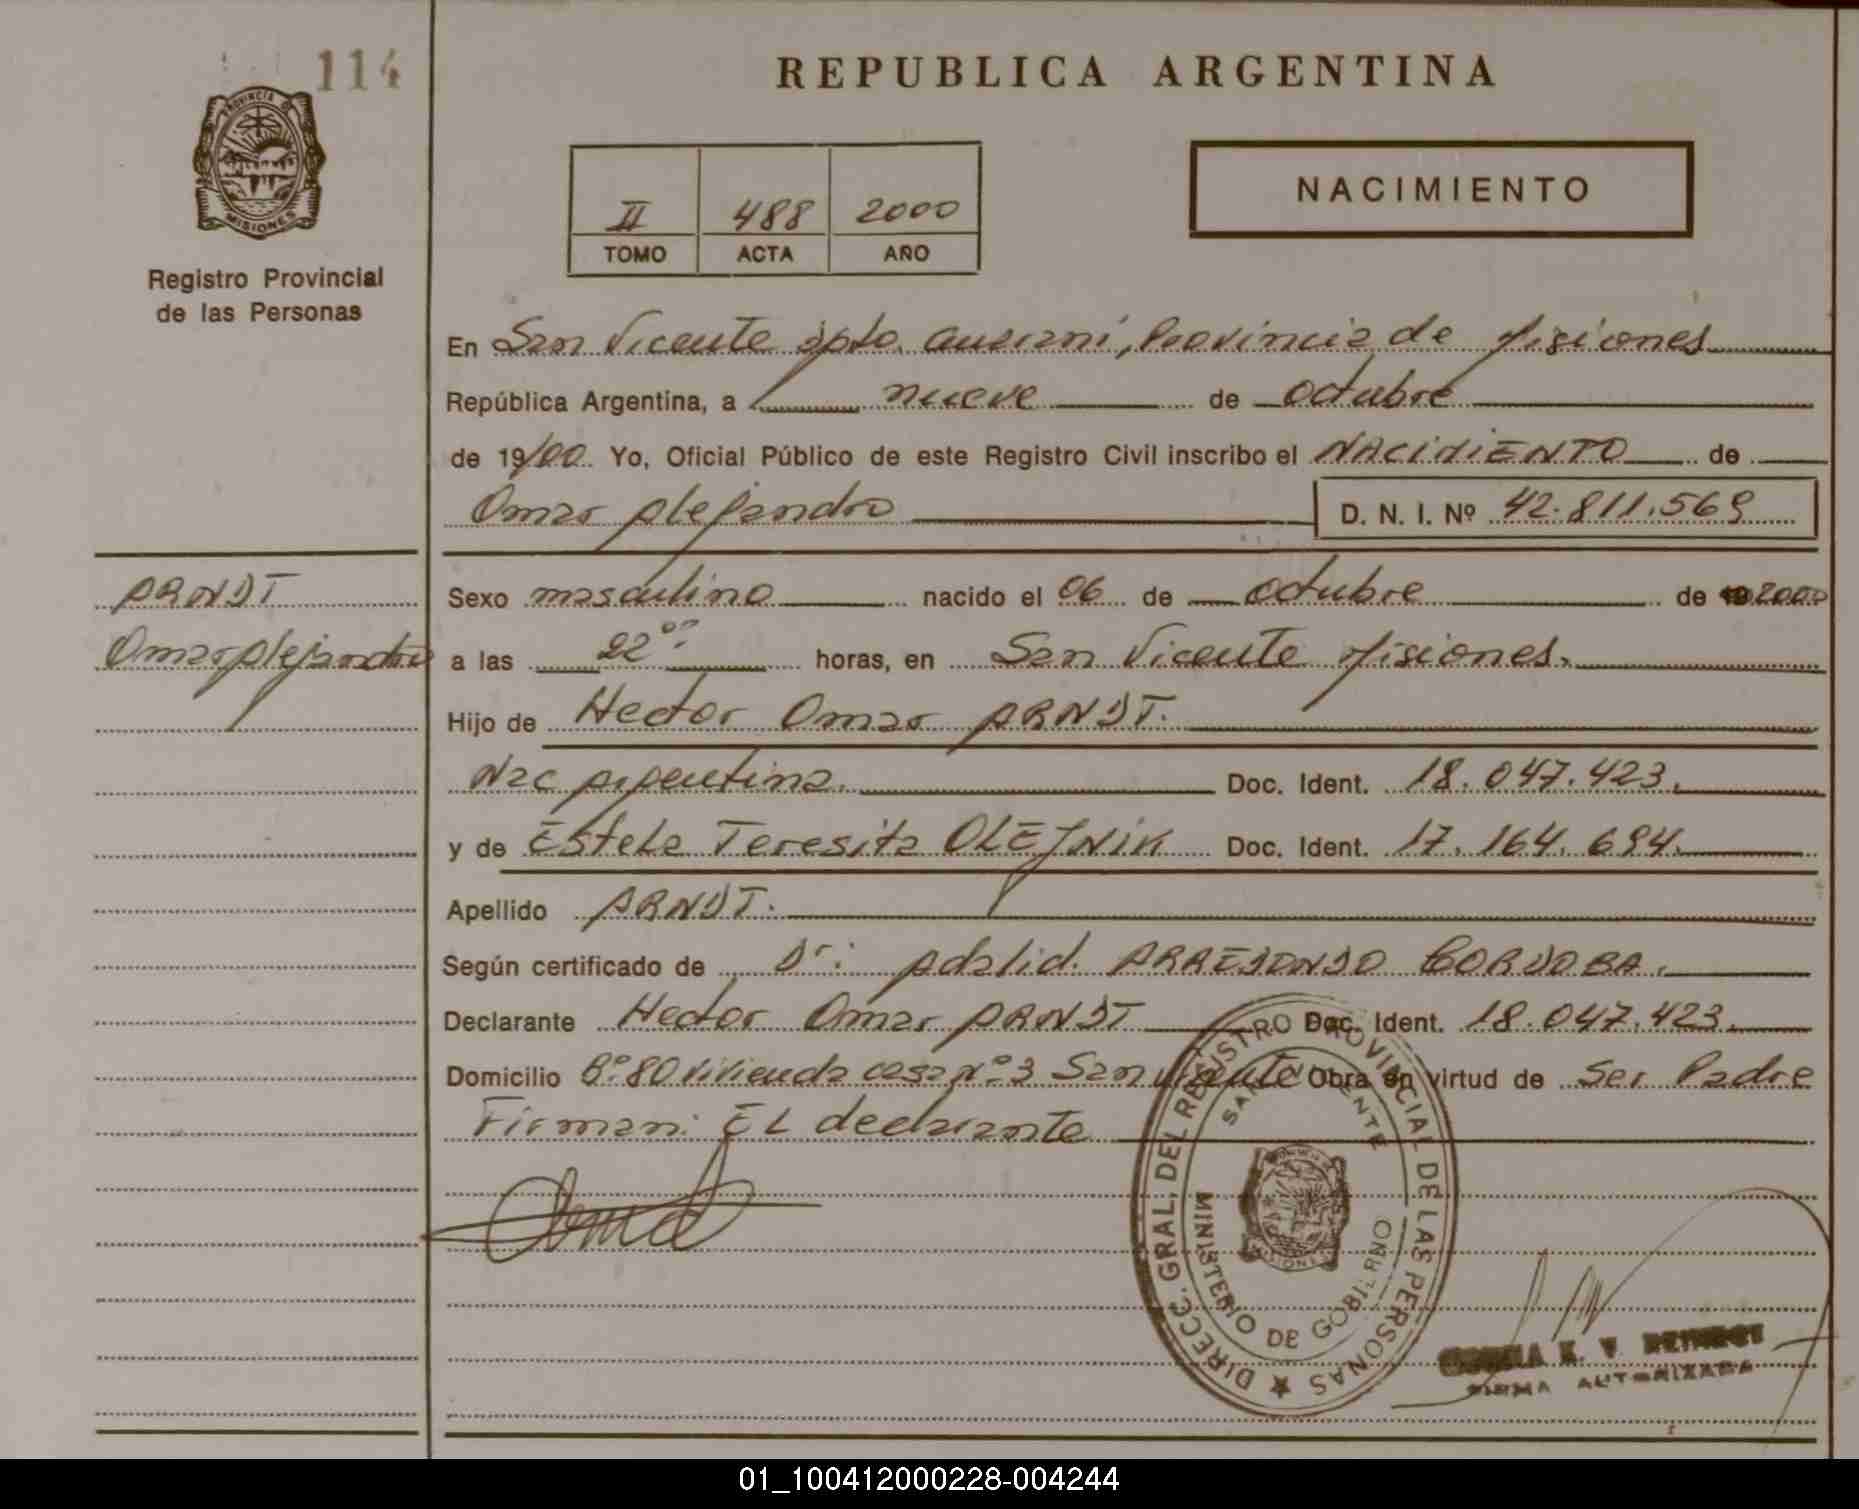 114
REPUBLICA ARGENTINA
PROVINCIA D
MISIONES
Registro Provincial
de las Personas
II 488 2000
TOMO ACTA AÑO
NACIMIENTO
En San Vicente Dpto. Guaraní, Provincia de Misiones
República Argentina, a nueve de octubre
de 19/00 Yo, Oficial Público de este Registro Civil inscribo el NACIMIENTO de
Omar Alejandro D. N. I. Nº 42.811.569
ARNDT
Omar Alejandro
Sexo masculino nacido el 06 de octubre de 2000
a las 22 horas, en San Vicente Misiones.
Hijo de Hector Omar ARNDT.
Nac Argentina. Doc. Ident. 18.047.423.
y de Estela Teresita OLEJNIK Doc. Ident. 17.164.694.
Apellido ARNDT.
Según certificado de Dr: Adalid CORDOBA.
Declarante Hector Omar ARNDT Doc. Ident. 18.047.423.
Domicilio Bº 80 vivienda casa Nº 3 San Vicente Obra en virtud de Ser Padre
Firman: EL declarante
DIRECC. GRAL. DEL REGISTRO PROVINCIAL DE LAS PERSONAS
SAN VICENTE
MISIONES
MINISTERIO DE GOBIERNO
FIRMA AUTORIZADA
01_100412000228-004244